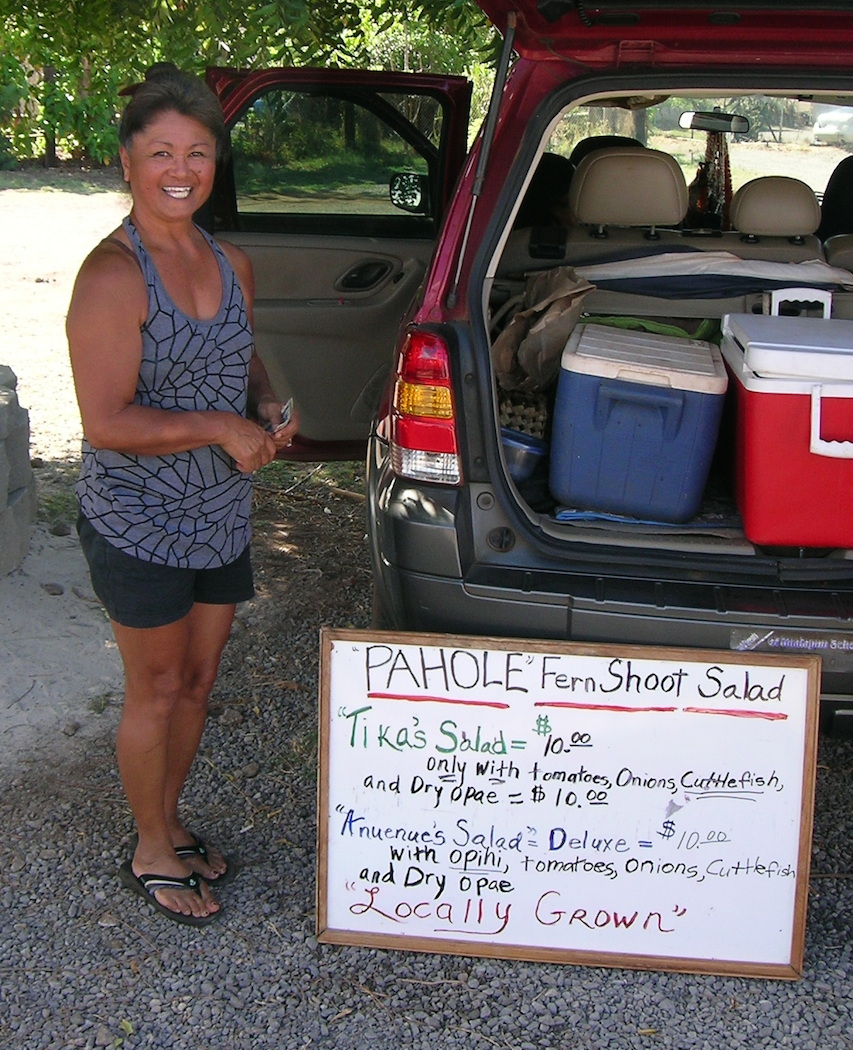 "PAHOLE" Fern Shoot Salad
"Tika's Salad = $10.00
only with tomatoes, Onions, Cuttlefish,
and Dry Opae = $10.00
"Anuenue's Salad" = Deluxe = $10.00
with opihi, tomatoes, onions, Cuttlefish
and Dry Opae
"Locally Grown"